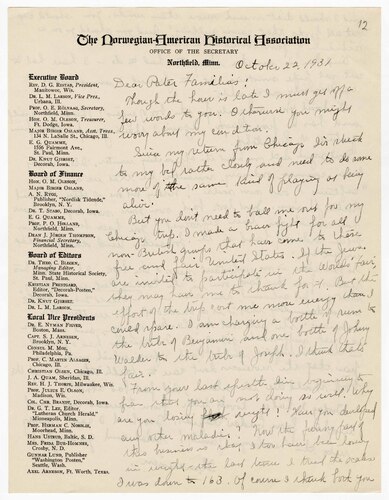 12
The Norwegian-American Historical Association
OFFICE OF THE SECRETARY
Northfield, Minn.
October 22 1931
Executive Board
REV. D. G. RISTAD, President,
Manitowoc, Wis.
DR. L. M. LARSON, Vice Pres.,
Urbana, Ill.
PROF. O. E. RÖLVAAG, Secretary,
Northfield, Minn.
HON. O. M. OLESON, Treasurer,
Ft. Dodge, Iowa
MAJOR BIRGER OSLAND, Asst. Treas.,
134 N. LaSalle St., Chicago, Ill.
E. G. QUAMME,
St. Paul, Minn.
DR. KNUT GJERSET,
Decorah, Iowa
Board of Finance
HON. O. M. OLESON,
MAJOR BIRGER OSLAND,
A. N. RYGG,
Publisher, "Nordisk Tidende,"
Brooklyn, N. Y.
DR. T. STABO, Decorah, Iowa.
E. G. QUAMME,
PROF. P. O. HOLLAND,
Northfield, Minn.
DEAN J. JÖRGEN THOMPSON,
Financial Secretary,
Northfield, Minn.
Board of Editors
DR. THEO. C. BLEGEN,
Managing Editor,
Minn. State Historical Society,
St. Paul, Minn.
KRISTIAN PRESTGARD,
Editor, "Decorah-Posten,"
Decorah, Iowa.
DR. KNUT GJERSET,
DR. L. M. LARSON.
Local Vice Presidents
DR. E. NYMAN FIGVED,
Boston, Mass.
CAPT. S. J. ARNESEN,
Brooklyn, N. Y.
CONSUL M. MOE,
Philadelphia, Pa.
PROF. C. MARTIN ALSAGER,
Chicago, Ill.
CHRISTIAN OLSEN, Chicago, Ill.
J. A. QUAM, Sheridan, Ill.
REV. H. J. THORPE, Milwaukee, Wis.
PROF. JULIUS E. OLSON,
Madison, Wis.
COL. CHR. BRANDT, Decorah, Iowa
DR. G. T. LEE, Editor,
"Lutheran Church Herald,"
Minneapolis, Minn.
PROF. HERMAN C. NORDLIE,
Moorhead, Minn.
HANS USTRUD, Baltic, S. D.
MRS. FRIDA BUE-HOMNES,
Crosby, N. D.
GUNNAR LUND, Publisher
"Washington Posten,"
Seattle, Wash.
AXEL ARNESON, Ft. Worth, Texas.
Dear Pater Familias!
Though the hour is late I must get off a
few words to you. Otherwise you might
worry about my condition.
Since my return from Chicago I've stuck
to my bed rather closely and need to do some
more of the same kind of playing at being
alive.
But you don't need to ball me out for my
Chicago trip. I made a brave fight for all
non-British groups that have come to these
free and fair United States. If the Jews
are invited to participate in the World's Fair,
they may have me to thank for it. But the
effort of the trip cost me more energy than I
could spare. I am charging a bottle of rum to
the tribe of Benjamin and one bottle of Johny
Walker to the tribe of Joseph. I think that's
fair.
From your last epistle I'm beginning to
fear that you are not doing so well. Why
are you losing weight? Have you developed
any other maladies? Now the funny part of
this business is that I too have been losing
in weight – the last time I tried the scales
I was down to 163. Of course I thank both you